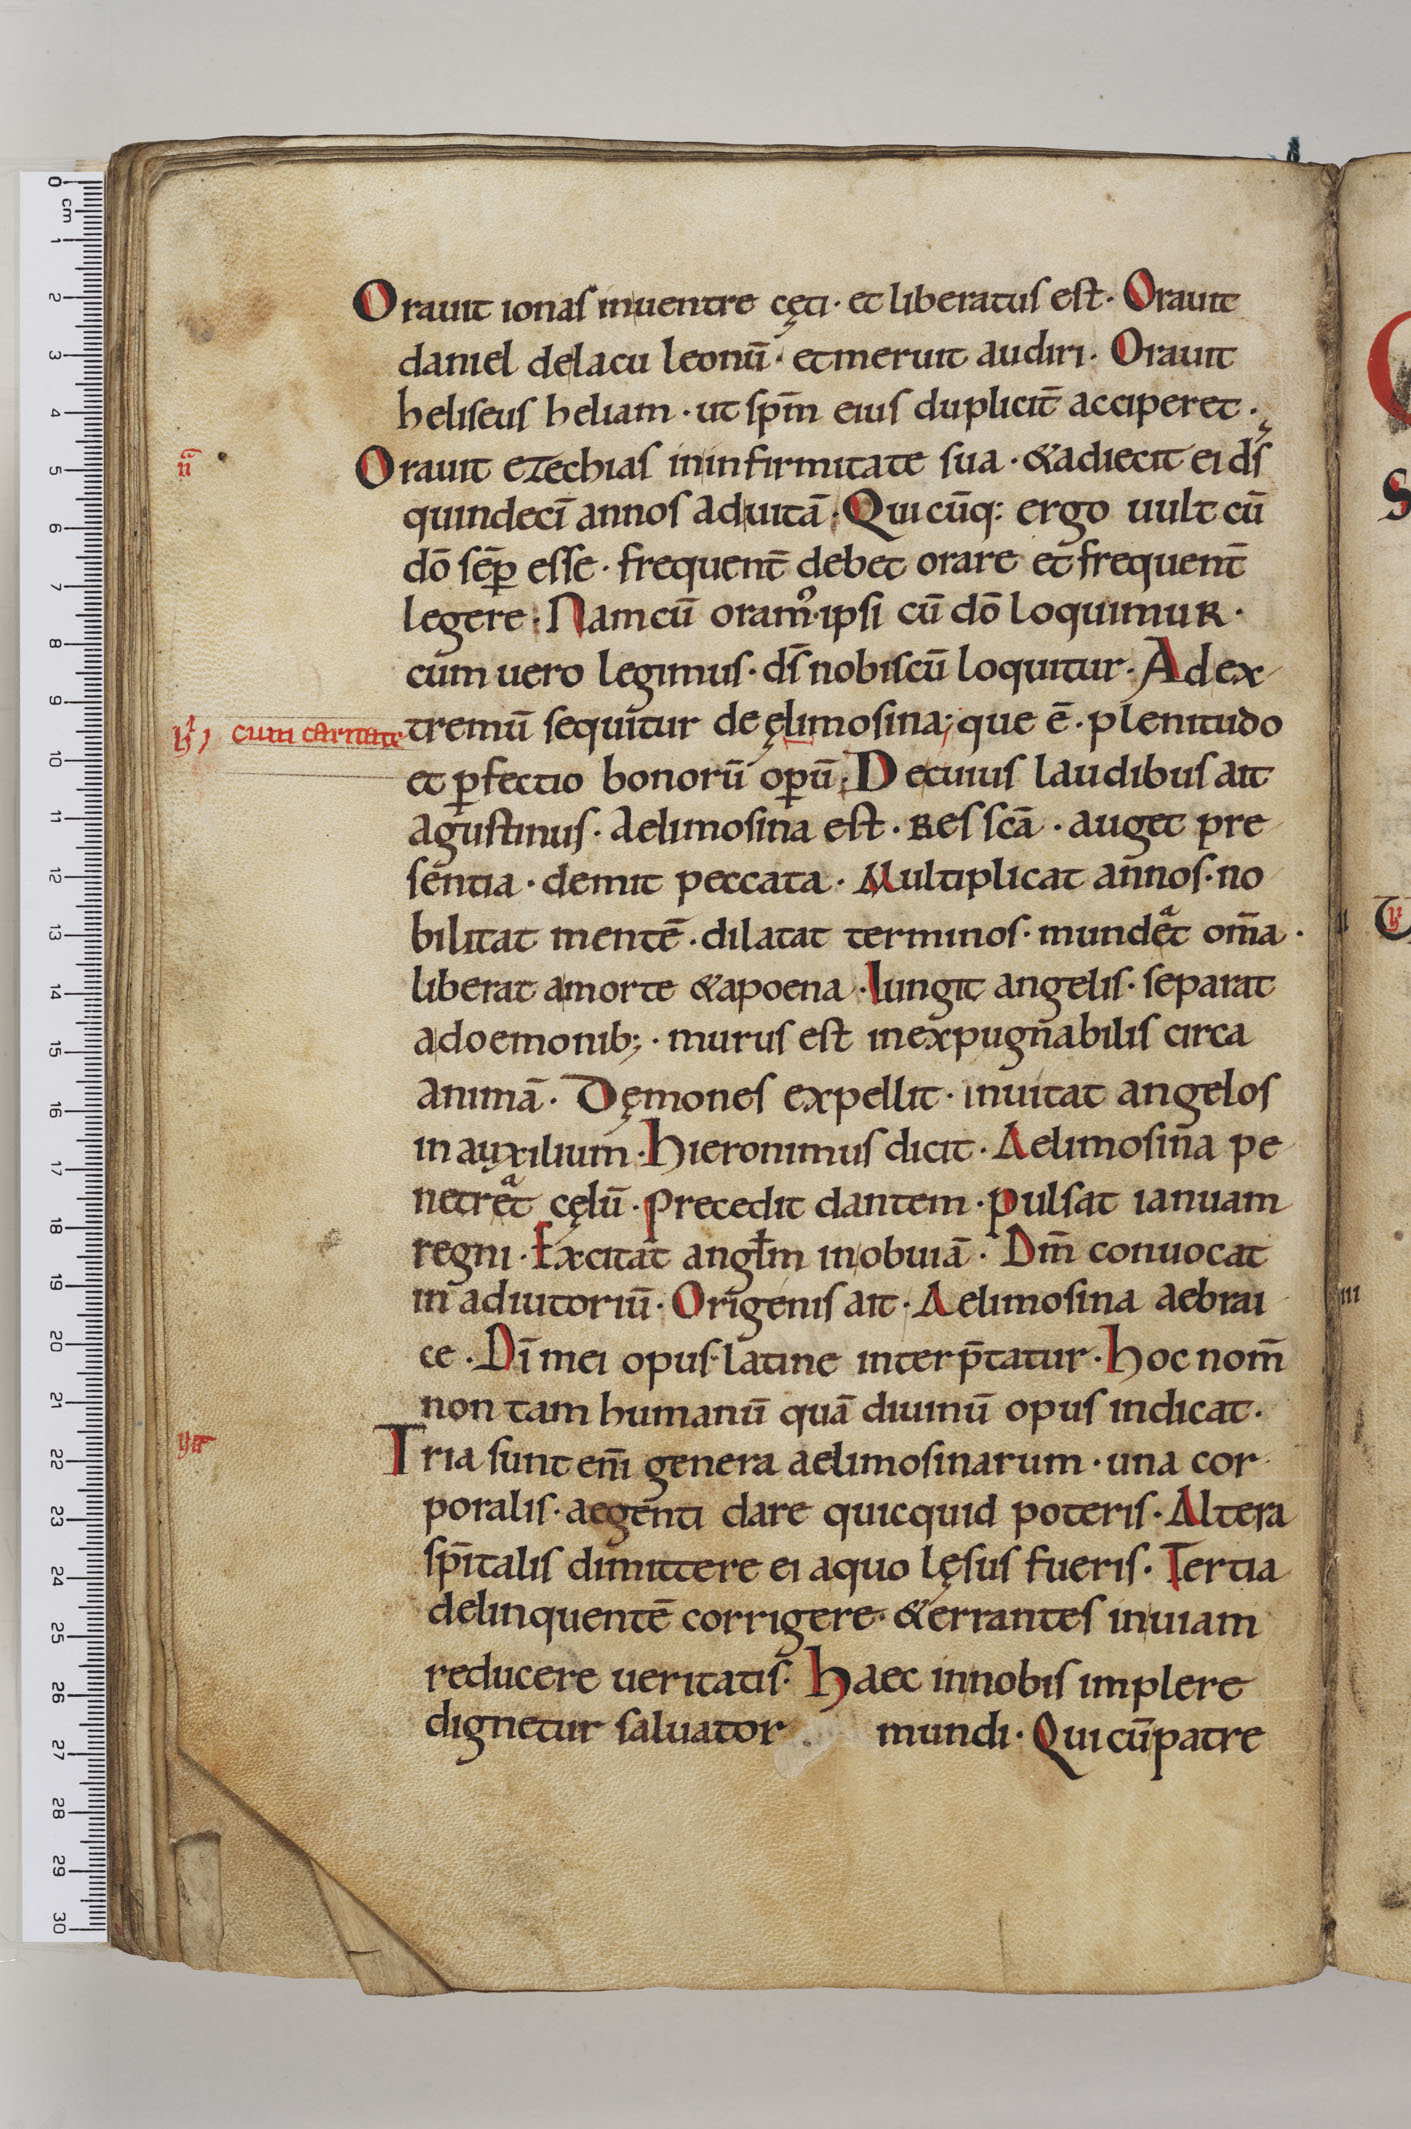 Orauit ionas inuentre cęti · et liberatus est · Orauit
daniel delacu leonū · etmeruit audiri · Orauit
heliseus heliam · ut sp̄m eius duplicit̄ acciperet ·
n̄
Orauit ezechias ininfirmitate sua · &adiecit ei ds̄
quindecī annos aduitā · Quicūq: ergo uult cū
dō sēp̱ esse · frequent̄ debet orare et frequent̄
legere · Namcū oramꝰ · ipsi cū dō loquimuR ·
cum uero legimus · ds̄ nobiscū loquitur · Adex
cum caritate
tremū sequitur de ęlimosina; que ē · plenitudo
et ꝑfectio bonorū oꝑū · Decuius laudibus ait
agustinus · aelimosina est · Res scā · auget pre
sentia · demit peccata · Multiplicat annos · no
bilitat mentē · dilatat terminos · mundet om̄a ·
liberat amorte &apoena · Iungit angelis · separat
adoemonib; · murus est inexpugnabilis circa
animā · Dęmones expellit · inuitat angelos
in auxilium · hieronimus dicit · Aelimosina pe
netret cęlū · precedit dantem · pulsat ianuam
regni · Excitat angl̄m inobuiā · Dm̄ conuocat
in adiutoriū · Origenis ait · Aelimosina aebrai
ce · Dī mei opus · latine interp̄tatur · hoc nom̄
non tam humanū quā diuinū opus indicat ·
Tria sunt enī genera aelimosinarum · una cor
poralis · aegenti dare quicquid poteris · Altera
sp̄italis dimittere ei aquo lęsus fueris · Tertia
delinquentē corrigere · &errantes inuiam
reducere ueritatis · haec innobis implere
dignetur saluator . mundi · Quicūpatre